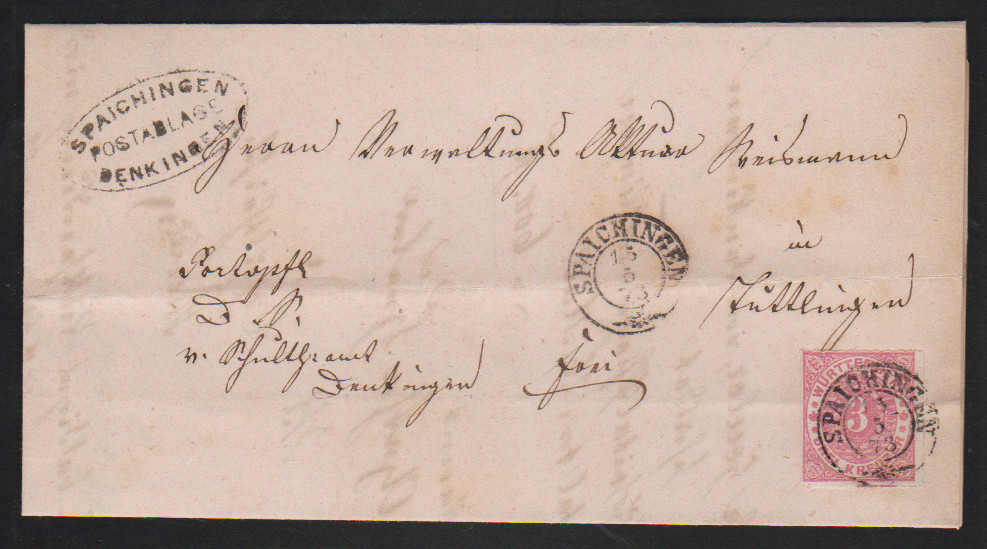 SPAICHINGEN
POSTABLAGE
DENKINGEN
Herrn Verwaltungs Aktuar Reismann
in
Tuttlingen
SPAICHINGEN
15
5
73
Portopfl
D. S.
v. Schulth:amt
Denkingen
frei
WÜRTTE
3
DREI KREUZER
SPAICHINGEN
5
73